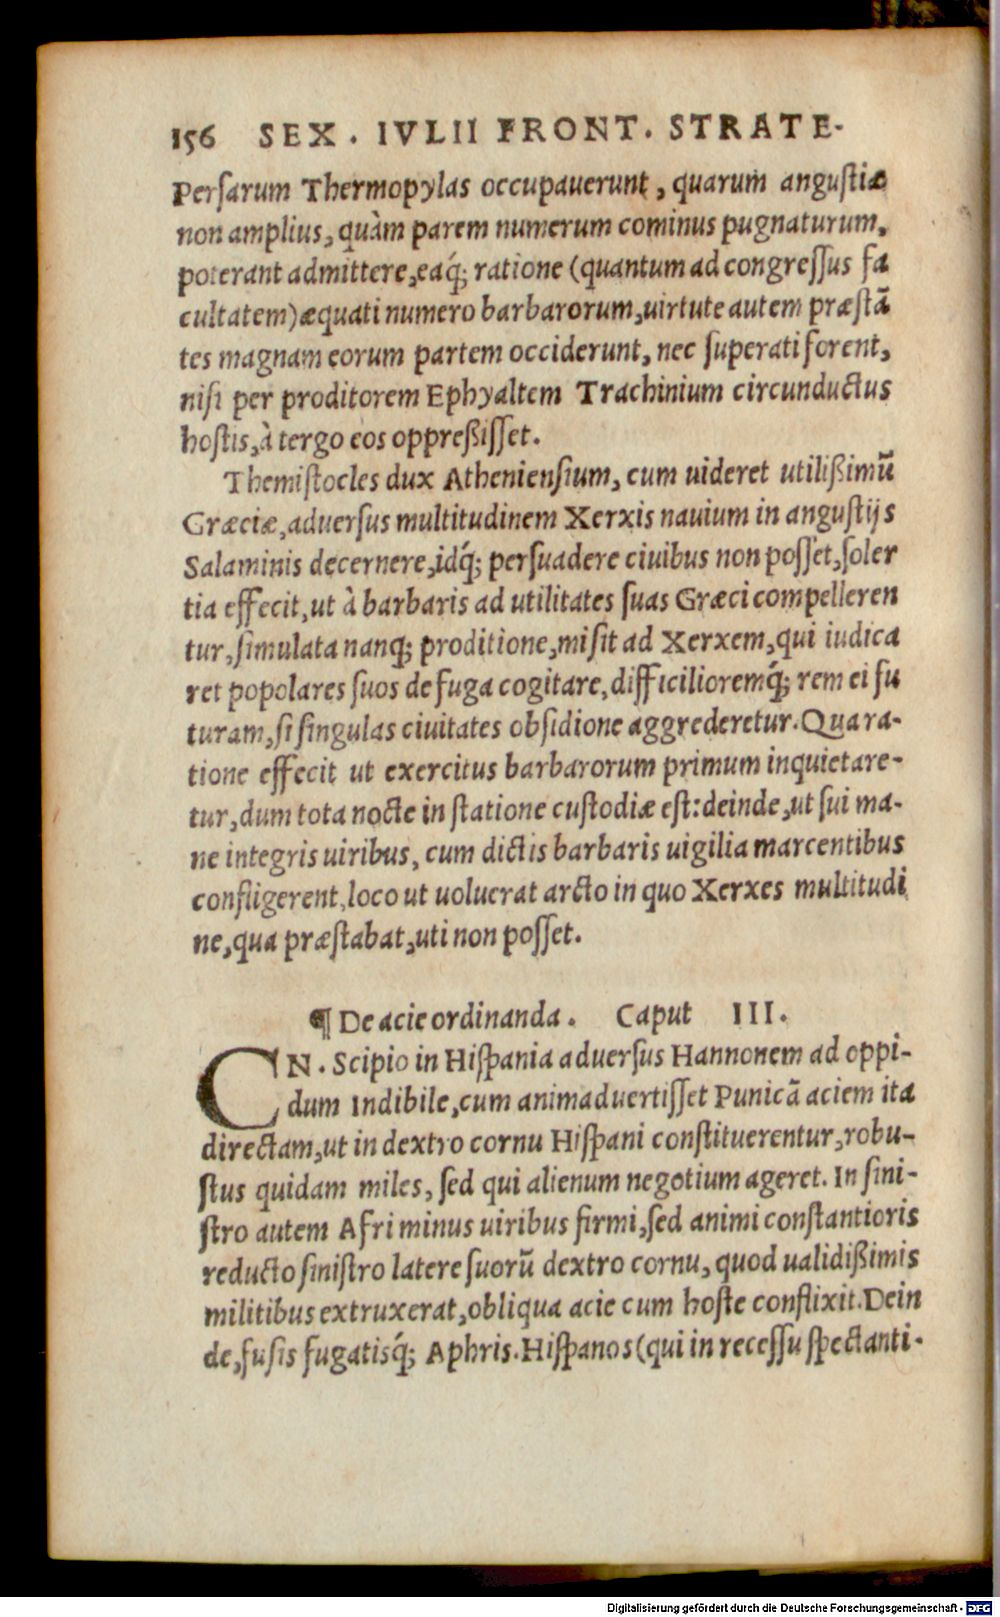 156 SEX. IVLII FRONT. STRATE-
Perſarum Thermopylas occupauerunt, quarum anguſtiæ
non amplius, quàm parem numerum cominus pugnaturum,
poterant admittere, eaq́; ratione (quantum ad congreſſus fa
cultatem) æquati numero barbarorum, uirtute autem præſtã
tes magnam eorum partem occiderunt, nec ſuperati forent,
niſi per proditorem Ephyaltem Trachinium circunductus
hoſtis, à tergo eos oppreßiſſet.
Themiſtocles dux Athenienſium, cum uideret utilißimũ
Græciæ, aduerſus multitudinem Xerxis nauium in anguſtijs
Salaminis decernere, idq́; perſuadere ciuibus non poſſet, ſoler
tia effecit, ut à barbaris ad utilitates ſuas Græci compelleren
tur, ſimulata nanq; proditione, miſit ad Xerxem, qui iudica
ret popolares ſuos de fuga cogitare, difficilioremq́; rem ei fu
turam, ſi ſingulas ciuitates obſidione aggrederetur. Qua ra-
tione effecit ut exercitus barbarorum primum inquietare-
tur, dum tota nocte in ſtatione cuſtodiæ eſt: deinde, ut ſui ma-
ne integris uiribus, cum dictis barbaris uigilia marcentibus
confligerent, loco ut uoluerat arcto in quo Xerxes multitudi
ne, qua præſtabat, uti non poſſet.
¶ De acie ordinanda. Caput III.
CN. Scipio in Hiſpania aduerſus Hannonem ad oppi-
dum Indibile, cum animaduertiſſet Punicã aciem ita
directam, ut in dextro cornu Hiſpani conſtituerentur, robu-
ſtus quidam miles, ſed qui alienum negotium ageret. In ſini-
ſtro autem Afri minus uiribus firmi, ſed animi conſtantioris
reducto ſiniſtro latere ſuorũ dextro cornu, quod ualidißimis
militibus extruxerat, obliqua acie cum hoſte conflixit. Dein
de, fuſis fugatisq́; Aphris. Hiſpanos (qui in receſſu ſpectanti-
Digitalisierung gefördert durch die Deutsche Forschungsgemeinschaft - DFG